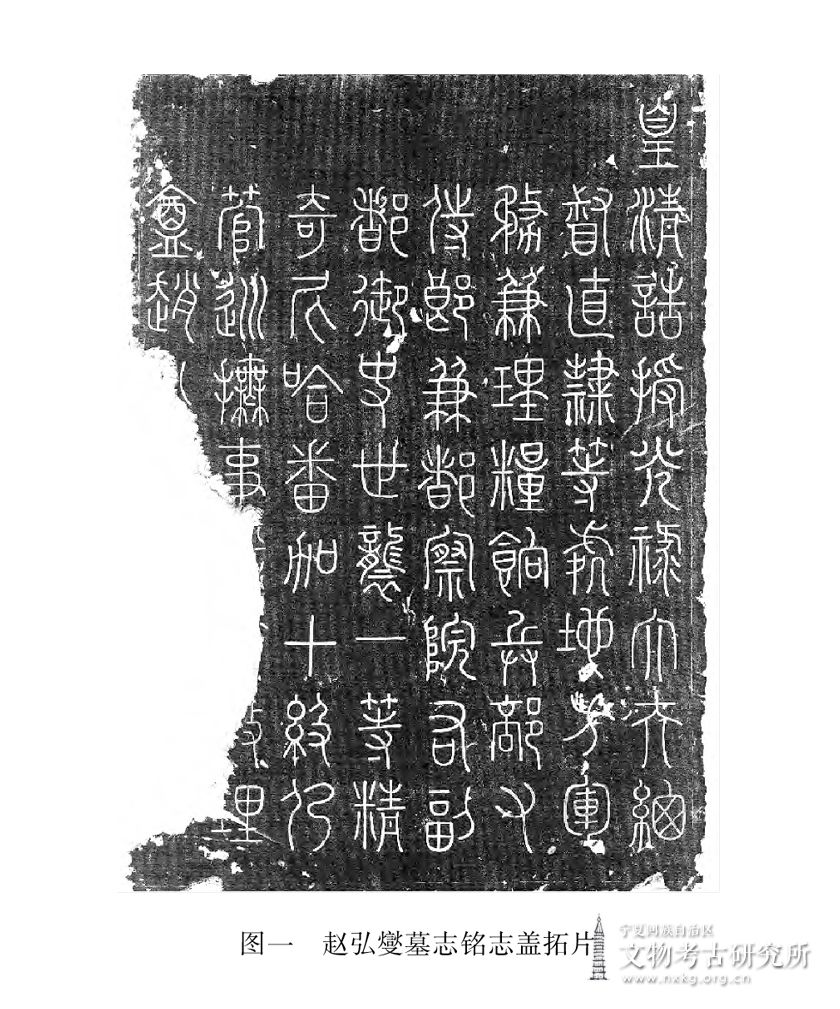 皇清誥授光祿大夫總
督直隸等處地方軍
務兼理糧餉兵部右
侍郎兼都察院右副
都御史世襲一等精
奇尼哈番加十級仍
管巡撫事理
鹽趙
图一 赵弘燮墓志铭志盖拓片
宁夏回族自治区
文物考古研究所
www.nxkg.org.cn